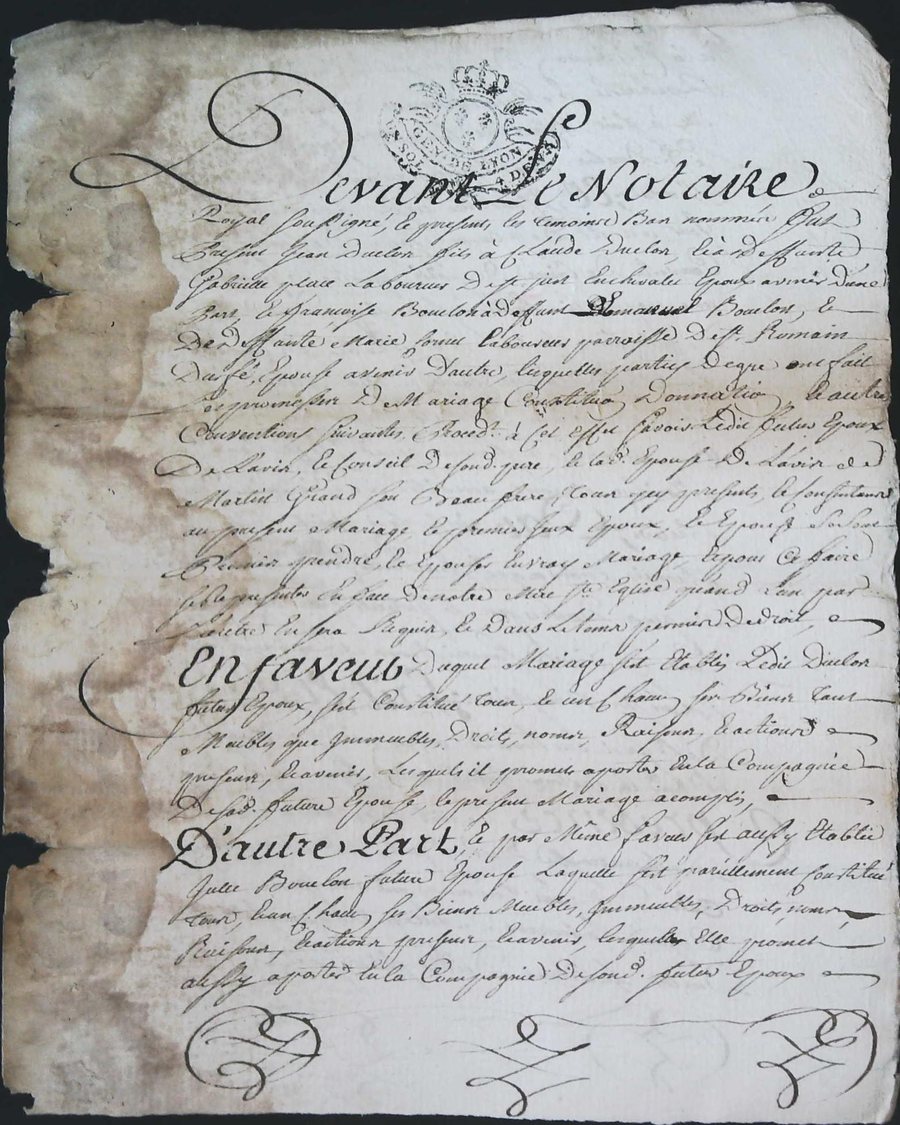 GEN. DE LYON
Devant Le Notaire
Royal Soussigné, et presents les temoins Bas nommés fut
Present Jean Duclos fils à Claude Duclos, et à deffunte
Gabrielle place Laboureur De st. just Enchevalet Epoux avenir D'une
Part, et françoise Bouclon à deffunt Bouclon, et
De deffunte Marie Laboureur parroisse De st. Romain
Durfé, Epouse avenir D'autre, lesquelles parties Degré ont fait
Les promesses De Mariage Constitu͠o Donnatio͠n, et autre
Conventions Suivantes, Proced͠t. à Cet Effet Savoir Ledit futur Epoux
De Lavis, et Conseil De sond. pere, et lad. Epouse De Lavis de
Martin Grand son Beau frere, tous icy presents, et
au present Mariage, et premier Epoux, et Epouse Se sont
prendre, et Epouser En vray Mariage, Ce faire
Se presenter En face De notre Mere ste Eglise quand L'un par
L'autre En sera Requis, et Dans Le tems permis De droit,
En faveur Duquel Mariage s'est Etably Ledit Duclos
futur Epoux, s'est Constitué tous, et un Chacun ses Biens tant
Meubles que immeubles, Droits, noms, Raisons, et actions
presens, et avenir, Lesquels il promet aporter En la Compagnie
De sad. future Epouse, le present Mariage acomply,
D'autre Part, et par Même faveur s'est aussy Etablie
Bouclon future Epouse Laquelle s'est pareillement Constitué
tous, et un Chacun ses Biens Meubles, immeubles, Droits, noms,
Raisons, et actions presens, et avenir, lesquels Elle promet
aussy aporter En la Compagnie De sond. futur Epoux